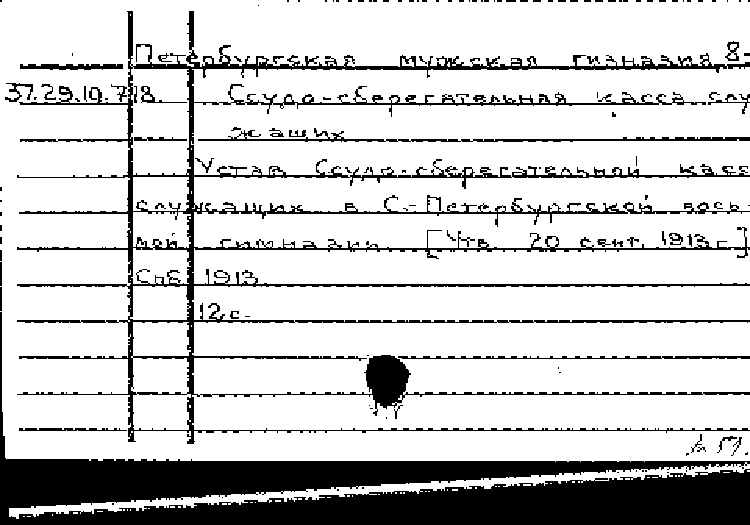 Петербургская мужская гимназия, 8-
37.29.10.718. Ссудо-сберегательная касса слу
жащих
Устав Ссудо-сберегательной касс
служащих в С.-Петербургской вось-
мой гимназии [Утв. 20 сент. 1913 г.]
Спб 1913.
12 с.